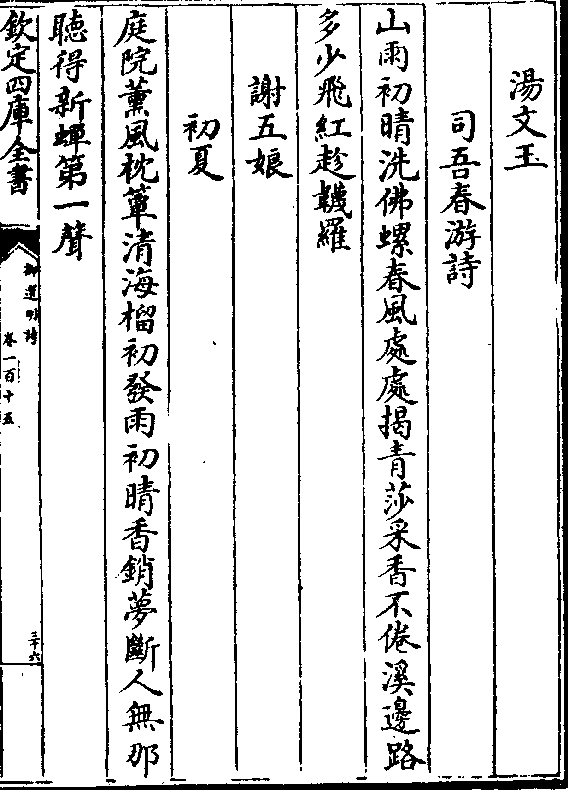 湯文玉
司吾春游詩
山雨初晴洗佛螺春風處處揭青莎采香不倦溪邊路
多少飛紅趁韈羅
謝五娘
初夏
庭院薰風枕簟清海榴初發雨初晴香銷夢斷人無那
聽得新蟬第一聲
欽定四庫全書
御選明詩
卷一百十五
三十六